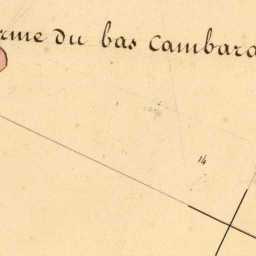 rme du bas Cambara
14